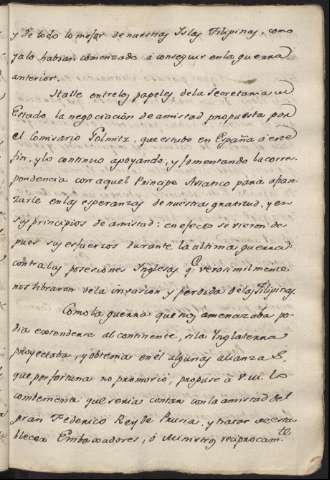 y de todo lo mejor de nuestras Islas Filipinas, como
ya lo habian comenzado à conseguir en la guerra
anterior.
Hallé entre los papeles de la Secretaria de
Estado la negociacion de amistad propuesta por
el Comisario Polmitz, que estubo en España à este
fin, y la continuó apoyando, y fomentando la corres-
pondencia con aquel Principe Asiatico para afian-
zarle en las esperanzas de nuestra gratitud, y en
sus principios de amistad: en efecto se vieron des-
pues sus esfuerzos durante la ultima guerra
contra las posesiones Inglesas q.e verosimilmente
nos libraron de la invasion y perdida de las Filipinas.
Como la guerra que nos amenazaba po-
dia extenderse al continente, si la Inglaterra
proyectaba, y obtenia en él algunas alianzas,
que por fortuna no promovió, propuse à V.M. lo
conveniente que sería contar con la amistad del
gran Federico Rey de Prusia, y tratar de esta-
blecer Embaxadores, ó Ministros reciprocam.te